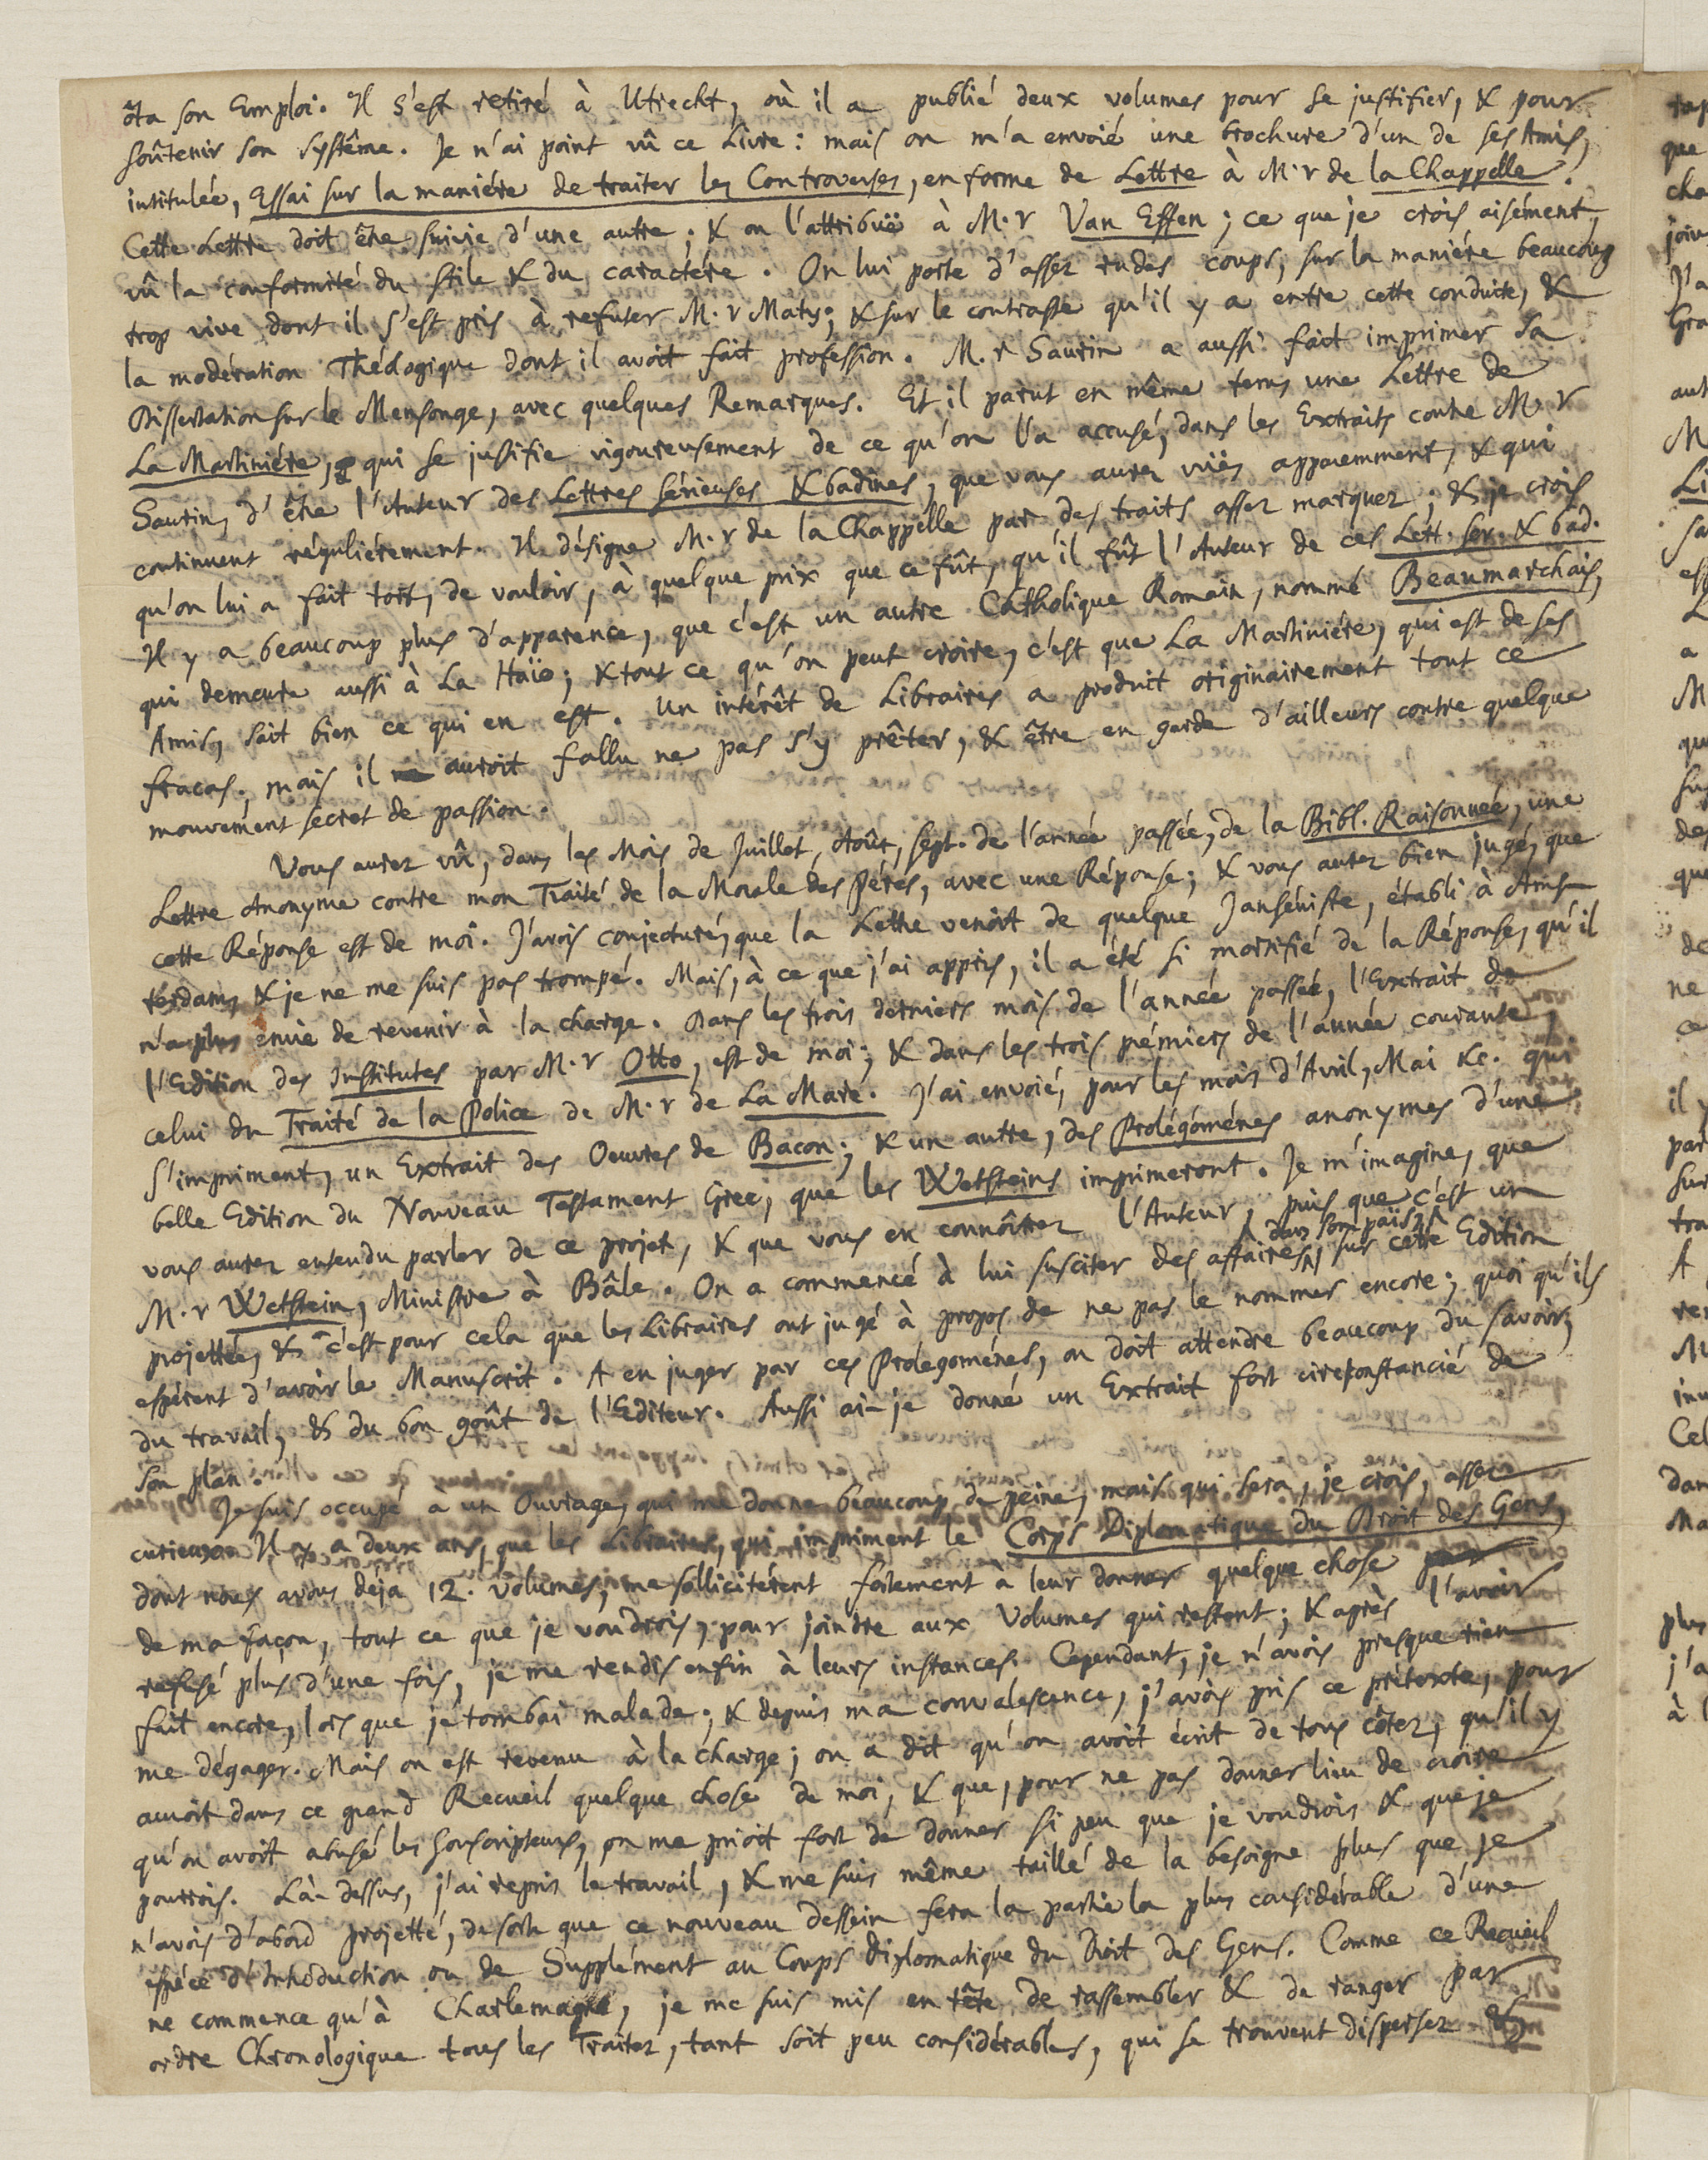 ôta son Emploi. Il s'est retiré à Utrecht, où il a publié deux volumes pour se justifier, & pour
soûtenir son systême. Je n'ai point vû ce Livre: mais on m'a envoié une brochure d'un de ses Amis,
intitulée, Essai sur la maniére de traiter les Controverses, en forme de Lettre à M.r de la Chappelle.
Cette Lettre doit être suivie d'une autre; & on l'attribuë à M.r Van Effen; ce que je crois aisément,
vû la conformité du stile & du caractére. On lui porte d'assez rudes coups, sur la maniére beaucoup
trop vive dont il s'est pris à refuter M.r Maty; & sur le contraste qu'il y a entre cette conduite, &
la modération Théologique dont il avoit fait profession. M.r Saurin a aussi fait imprimer sa
Dissertation sur le Mensonge, avec quelques Remarques. Et il parut en même tems une Lettre de
La Martiniére, qui se justifie vigoureusement de ce qu'on l'a accusé, dans les Extraits contre M.r
Saurin, d'être l'Auteur des Lettres sérieuses & badines, que vous aurez vuës apparemment, & qui
continuent réguliérement. Il désigne M.r de la Chappelle par des traits assez marquez; & je crois
qu'on lui a fait tort, de vouloir, à quelque prix que ce fût, qu'il fût l'Auteur de ces Lett. ser. & bad.
Il y a beaucoup plus d'apparence, que c'est un autre Catholique Romain, nommé Beaumarchais,
qui demeure aussi à La Haïe; & tout ce qu'on peut croire, c'est que La Martiniére, qui est de ses
Amis, sait bien ce qui en est. Un intérêt de Libraires a produit originairement tout ce
fracas; mais il auroit fallu ne pas s'y prêter, & être en garde d'ailleurs contre quelque
mouvement secret de passion.
Vous aurez vû, dans les Mois de Juillet, Août, Sept. de l'année passée, de la Bibl. Raisonnée, une
Lettre Anonyme contre mon Traité de la Morale des Péres, avec une Réponse; & vous aurez bien jugé, que
cette Réponse est de moi. J'avois conjecturé, que la Lettre venoit de quelque Janséniste, établi à Ams-
terdam, & je ne me suis pas trompé. Mais, à ce que j'ai appris, il a été si mortifié de la Réponse, qu'il
n'a plus envie de revenir à la charge. Dans les trois derniers mois de l'année passée, l'Extrait de
l'Edition des Institutes par M.r Otto, est de moi; & dans les trois prémiers de l'année courante,
celui du Traité de la Police de M.r de La Mare. J'ai envoié, pour les mois d'Avril, Mai &c. qui
s'impriment, un Extrait des Oeuvres de Bacon; & un autre, des Prolégoménes anonymes d'une
belle Edition du Nouveau Testament Grec, que les Wetsteins imprimeront. Je m'imagine, que
vous aurez entendu parler de ce projet, & que vous en connoîtrez l'Auteur, puis que c'est un
M.r Wetstein, Ministre à Bâle. On a commencé à lui susciter des affaires, dans son païs, sur cette Edition
projettée, & c'est pour cela que les Libraires ont jugé à propos de ne pas le nommer encore; quoi qu'ils
espérent d'avoir le Manuscrit. A en juger par ces Prolegoménes, on doit attendre beaucoup du savoir,
du travail, & du bon goût de l'Editeur. Aussi ai-je donné un Extrait fort circonstancié de
son plan.
Je suis occupé à un Ouvrage, qui me donne beaucoup de peine, mais qui sera, je crois, assez
curieux. Il y a deux ans, que les Libraires, qui impriment le Corps Diplomatique du Droit des Gens,
dont nous avons déja 12. volumes, me sollicitérent fortement à leur donner quelque chose
de ma façon, tout ce que je voudrois, pour joindre aux Volumes qui restent; & après l'avoir
refusé plus d'une fois, je me rendis enfin à leurs instances. Cependant, je n'avois presque rien
fait encore, lors que je tombai malade; & depuis ma convalescence, j'avois pris ce prétexte, pour
me dégager. Mais on est revenu à la charge; on a dit qu'on avoit écrit de tous côtez, qu'il y
auroit dans ce grand Recueil quelque chose de moi, & que, pour ne pas donner lieu de croire
qu'on avoit abusé les Souscripteurs, on me prioit fort de donner si peu que je voudrois & que je
pourrois. Là-dessus, j'ai repris le travail, & me suis même taillé de la besoigne plus que je
n'avois d'abord projetté, de sorte que ce nouveau dessein fera la partie la plus considérable d'une
espéce d'Introduction ou de Supplément au Corps Diplomatique du Droit des Gens. Comme ce Recueil
ne commence qu'à Charlemagne, je me suis mis en tête de rassembler & de ranger par
ordre Chronologique tous les Traitez, tant soit peu considérables, qui se trouvent dispersez &